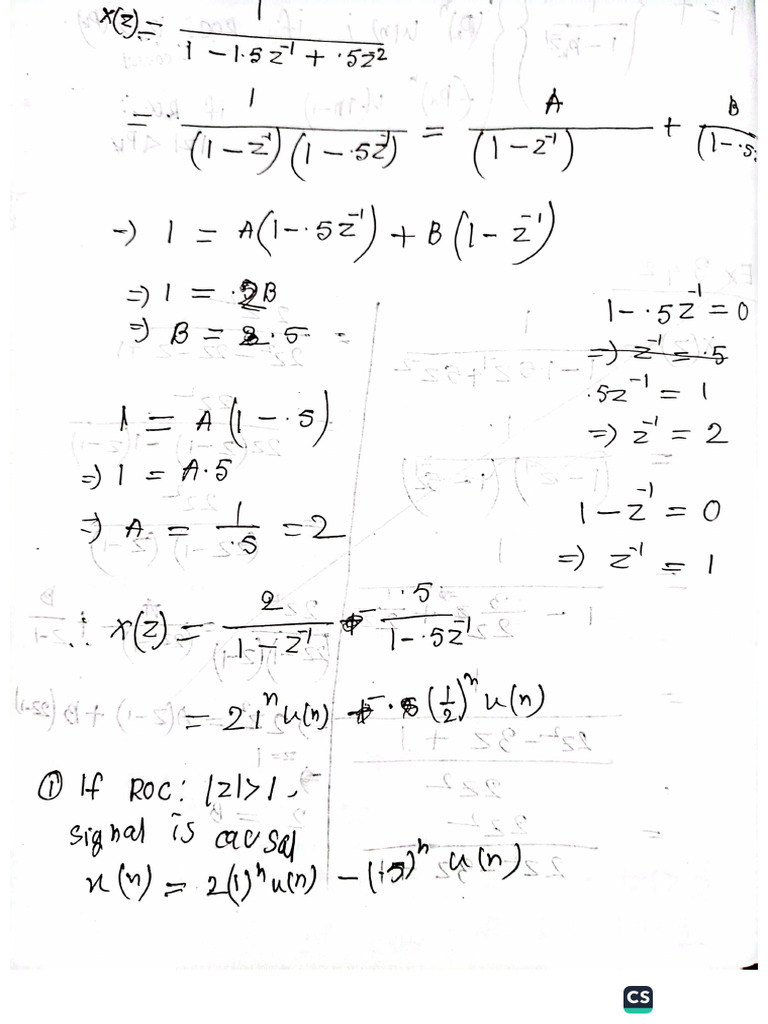 X(z) = 1 / (1 - 1.5z⁻¹ + .5z²)
= 1 / ((1 - z⁻¹)(1 - .5z⁻¹)) = A / (1 - z⁻¹) + B / (1 - .5
→ 1 = A(1 - .5z⁻¹) + B(1 - z⁻¹)
⇒ 1 = B
⇒ B = .5
1 = A(1 - .5)
⇒ 1 = A.5
⇒ A = 1 / .5 = 2
1 - .5z⁻¹ = 0
⇒ z⁻¹ = .5
.5z⁻¹ = 1
⇒ z⁻¹ = 2
1 - z⁻¹ = 0
⇒ z⁻¹ = 1
∴ X(z) = 2 / (1 - z⁻¹) - .5 / (1 - .5z⁻¹)
= 2 1ⁿ u(n) - (1/2)ⁿ u(n)
① If ROC: |z|>1,
signal is causal
x(n) = 2(1)ⁿ u(n) - (.5)ⁿ u(n)
CS